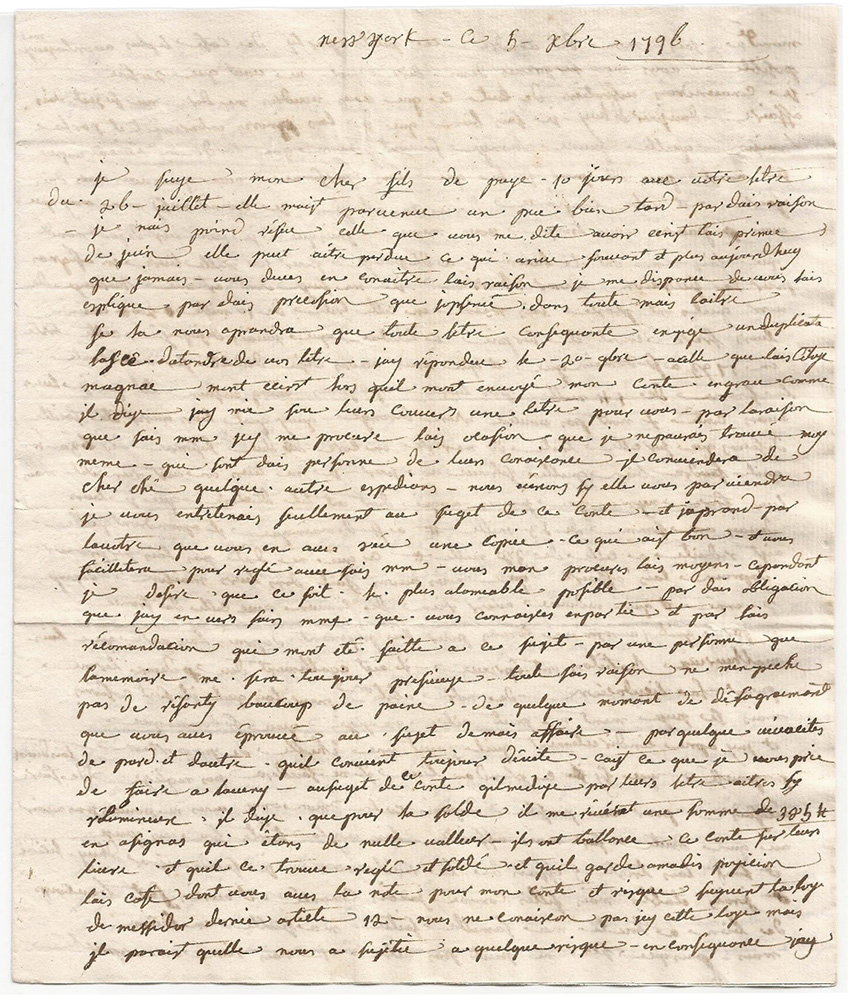 new york - ce 5 - xbre 1796.
je suye mon cher fils de puye - 10 jours avec votre letre
du 26 - juillet - elle mait parvenue un peu bien tard - par dais raison
- je nais poind resue celle que vous me dite avoir ecrit lais premiee
de juin elle peut aitre perdue ce qui arive souvant et plus aujourdhuy
que jamais - vous deves en conaitre lais raison je me dispance de vous lais
esplique par dais precosion que in toute mais laitre
se la nous aprandra que toute letre consequante exige un duplicata
datandre de vos letre - jay répondue le - 20 - 9bre - acelle que lais Citoye
magnac mont ecrit lors quil mont envoyé mon conte - en grau comme
il dise jay mie sou leurs couvers une letre pour vous - par laraison
que sais mm jey me procure lais ocasion que je ne paurais trouvé moy
meme - qui sont dais personne de leurs conaisance - il conviendera de
cher ché quelque autre espedians - nous verons sy elle vous parviendra
je vous entretenais seullement au suget de ce conte - et japrand par
lavotre que vous en aves une copiee - ce qui aist bon - et vous
facilletera pour reglé avec sais mm - vous mon procures lais moyens - cepandant
je desire que ce soit le plus alamiable posible - par dais obligation
que jay en vers sais mm - que vous connaises enpartie et par lais
récomandacion qui mont eté faitte a ce sujet - par une personne que
lamemoire me sera toujour presieuse - toute sais raison ne menpeche
pas de résanty baucoup de paine - de quelque momant de désagraimant
que vous aves éprouvée au sujet de mais affaire - par quelque vivacités
de pard et dautre quil convient toujour dévité - caist ce que je vous prie
de faire a laveny - au suget de ce conte qil me dise par leurs letre aitres sy
volumineuse il dise que pour la solde il me une somme de 325 #
en asignas qui etans de nulle valleur - ils ont ballancé ce conte sur leurs
livre et quil ce trouve reglé et soldé et quil garde amadis posicion
lais cafe dont vous aves la note pour mon conte et risque suivent la loye
de messidor dernié article 12 - nous ne conaison pas jey cette loye mais
il parait quelle nous a sujetie a quelque risque - en consequance jay